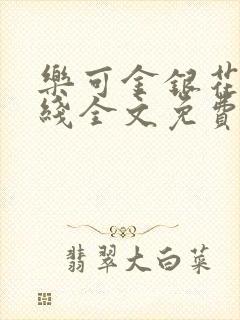 樂可金銀花
綫全文免費
翡翠大白菜